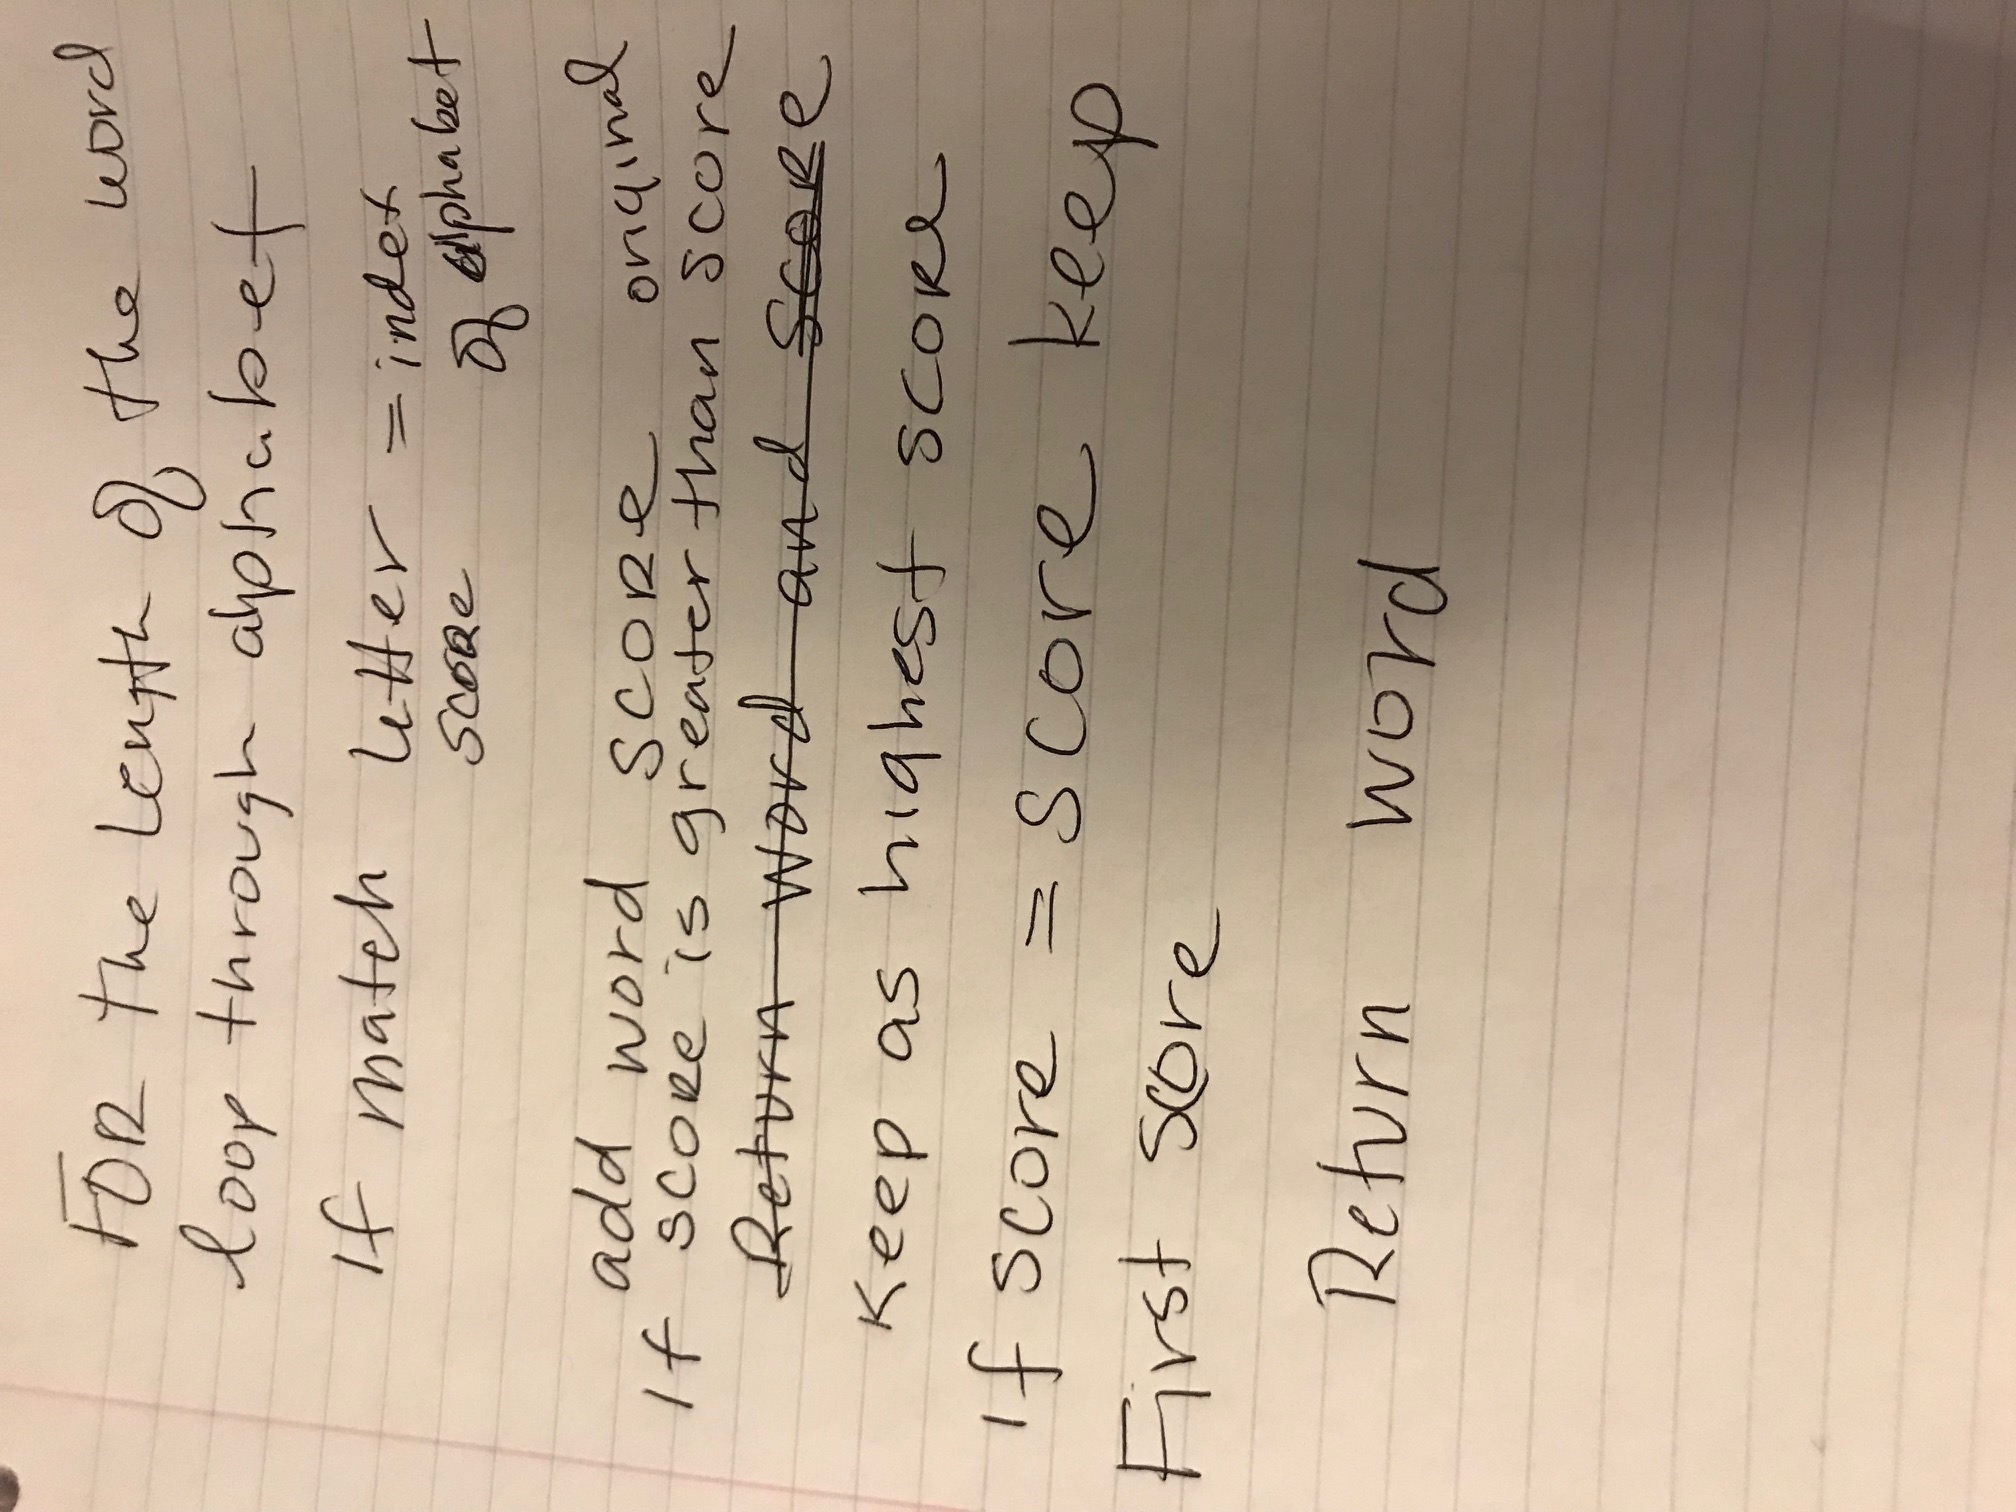 FOR the Length of the word
loop through alphabet
If match letter = index
score of alphabet
add word score original
If score is greater than score
Return Word and Score
Keep as highest score
If score = score keep
First score
Return word